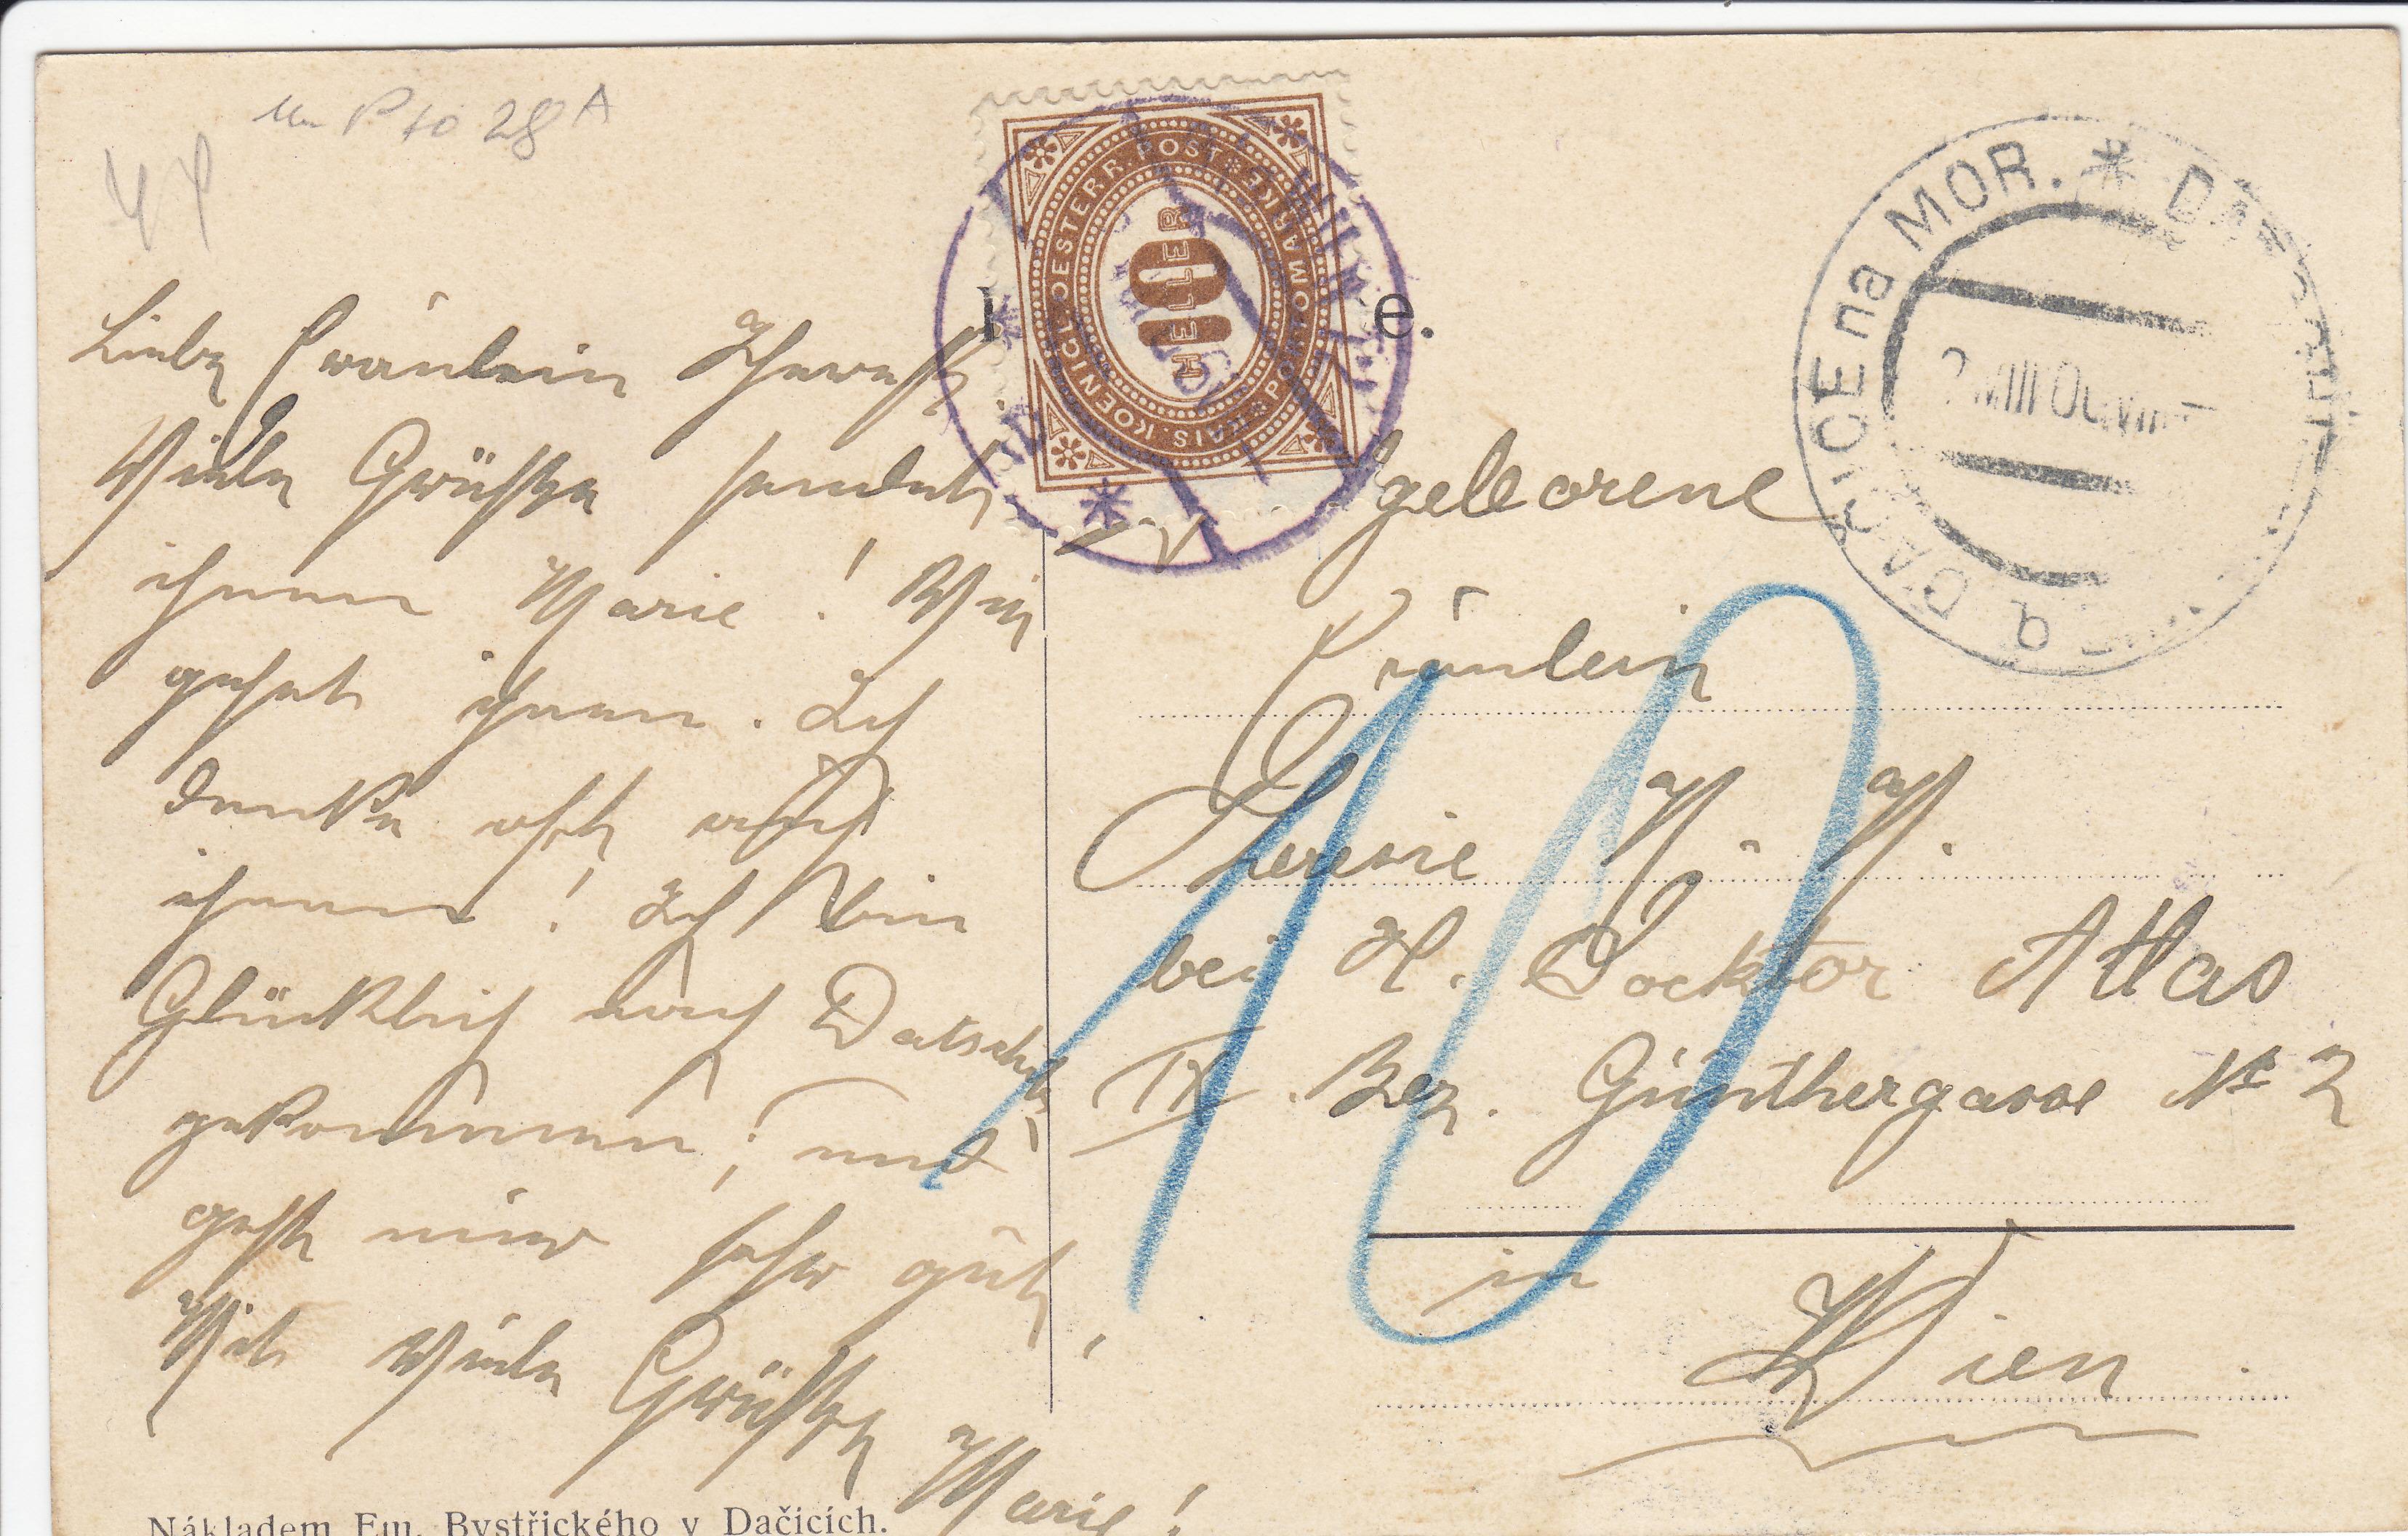 28 A
44
KAIS. KOENIGL. OESTERR. POST
PORTOMARKE
10
HELLER
e.
DAČICE na MOR. * DA
VIII
Liebe Fräulein
Viele Grüsse sendet
ihnen Marie! Wie
gehet ihnen. Ich
denke oft auf
ihnen! Ich bin
Glücklich nach Datschitz
gekommen, und
geht mir sehr gut,
Mit Viele Grüsse
Marie!
geborene
Fräulein
Theresie
bei H. Docktor Atlas
IX. Bez. Günthergasse No 2
in
Wien
10
Nákladem Em. Bystřického v Dačicích.